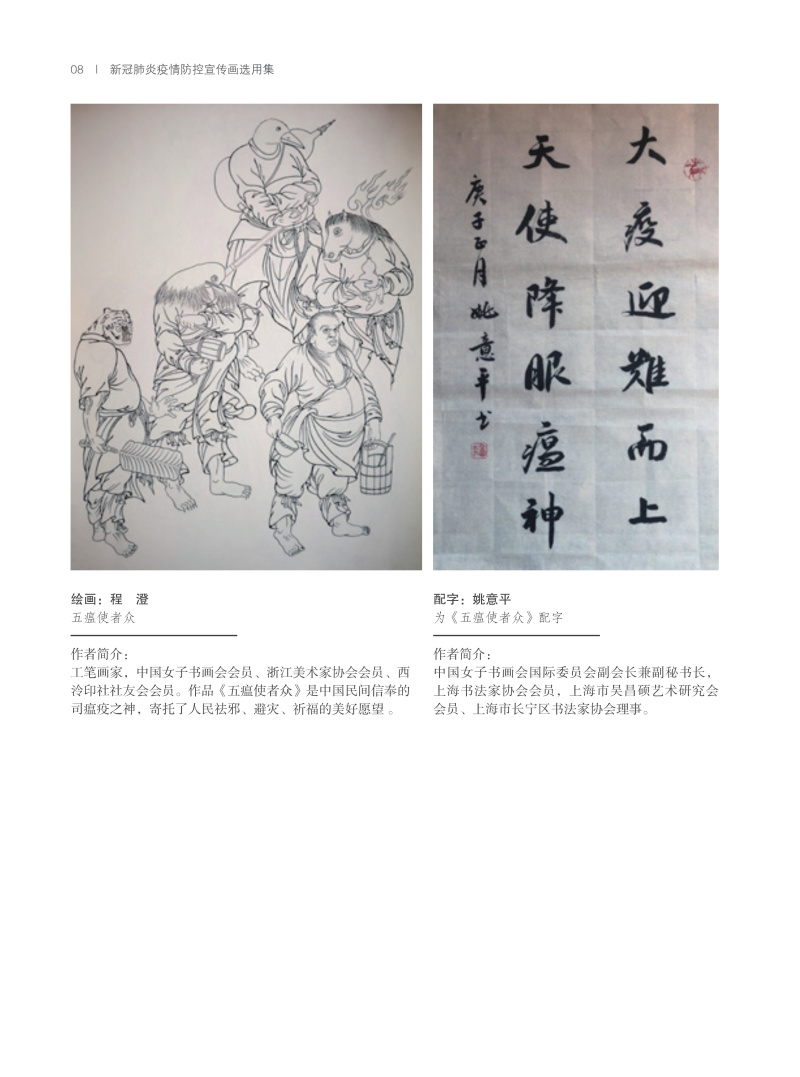 08 | 新冠肺炎疫情防控宣传画选用集
大疫迎难而上
天使降服瘟神
庚子正月姚意平书
绘画：程　澄
五瘟使者众
作者简介：
工笔画家，中国女子书画会会员、浙江美术家协会会员、西
泠印社社友会会员。作品《五瘟使者众》是中国民间信奉的
司瘟疫之神，寄托了人民祛邪、避灾、祈福的美好愿望 。
配字：姚意平
为《五瘟使者众》配字
作者简介：
中国女子书画会国际委员会副会长兼副秘书长，
上海书法家协会会员，上海市吴昌硕艺术研究会
会员、上海市长宁区书法家协会理事。